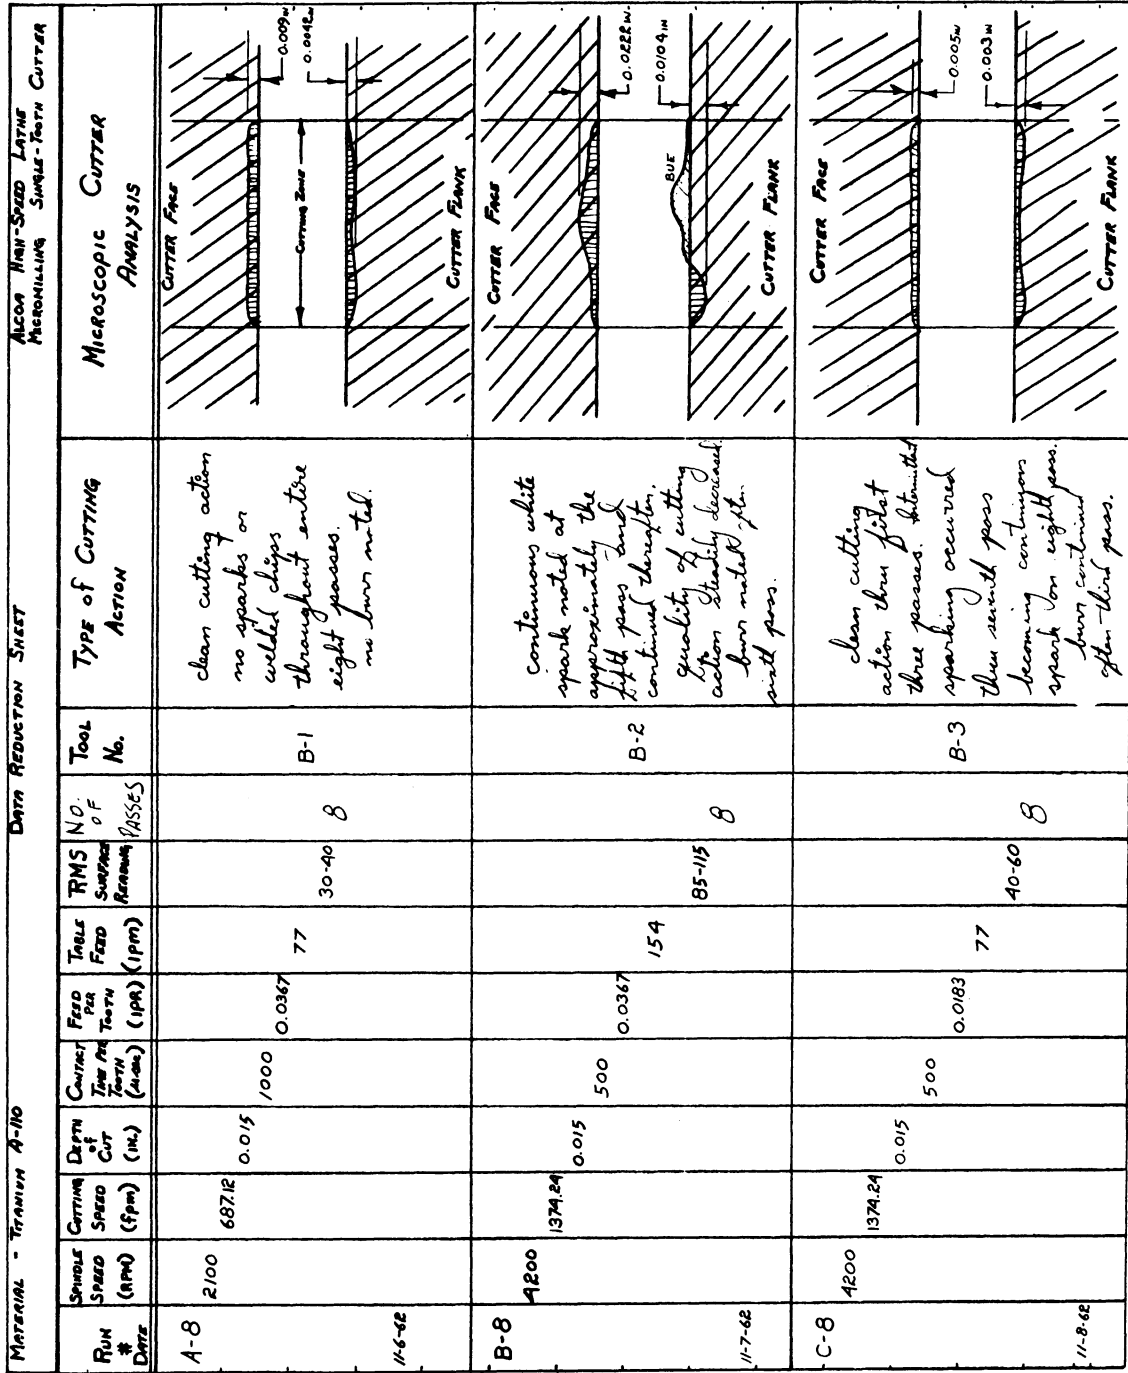 MATERIAL - TITANIUM A-110
DATA REDUCTION SHEET
ALCOA HIGH-SPEED LATHE
MICROMILLING SINGLE-TOOTH CUTTER
RUN # DATE
SPINDLE SPEED (RPM)
CUTTING SPEED (fpm)
DEPTH of CUT (IN.)
CONTACT TIME PER TOOTH
FEED PER TOOTH (IPR)
TABLE FEED (IPM)
RMS SURFACE READING
NO. OF PASSES
TOOL No.
TYPE of CUTTING ACTION
MICROSCOPIC CUTTER ANALYSIS
A-8
11-6-62
2100
687.12
0.015
1000
0.0367
77
30-40
8
B-1
clean cutting action
no sparks or
welded chips
throughout entire
eight passes.
no burr noted.
CUTTER FACE
CUTTING ZONE
CUTTER FLANK
0.009IN
0.0042IN
B-8
11-7-62
4200
1374.24
0.015
500
0.0367
154
85-115
8
B-2
continuous white
spark noted at
approximately the
fifth pass and
continued thereafter.
quality of cutting
action steadily decreased.
burr noted after
sixth pass.
CUTTER FACE
BUE
CUTTER FLANK
0.0222IN.
0.0104IN
C-8
11-8-62
4200
1374.24
0.015
500
0.0183
77
40-60
8
B-3
clean cutting
action thru first
three passes. Intermittent
sparking occurred
thru seventh pass
becoming continuous
spark on eighth pass.
burr continued
after third pass.
CUTTER FACE
CUTTER FLANK
0.005IN
0.003IN